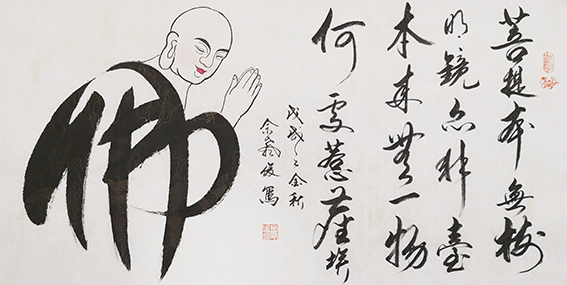 菩提本無樹
明鏡亦非臺
本来無一物
何處惹塵埃
戊戌之金秋
余俊寫
佛